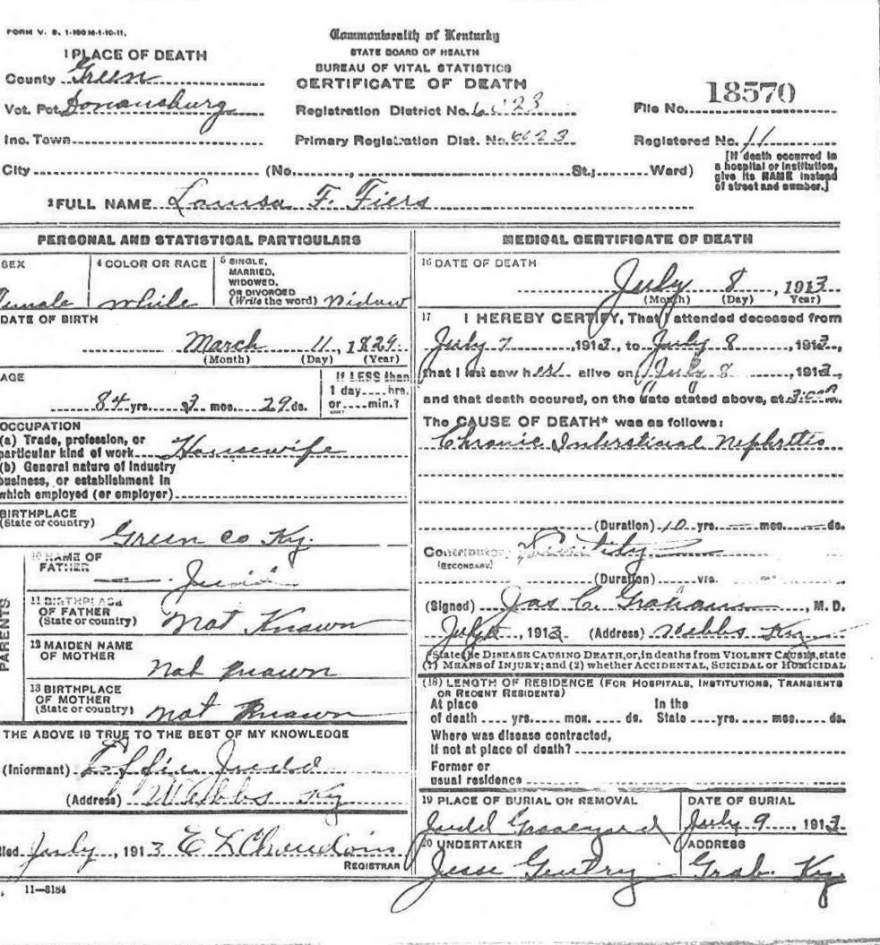 FORM V. S. 1-100 M-1-10-11.
Commonwealth of Kentucky
STATE BOARD OF HEALTH
BUREAU OF VITAL STATISTICS
CERTIFICATE OF DEATH
1 PLACE OF DEATH
County Green
Vot. Pct. Donansburg
Registration District No. 6023
File No. 18570
Inc. Town
Primary Registration Dist. No. 6623
Registered No. 11
City (No. , St.; Ward)
[If death occurred in a hospital or institution, give its NAME instead of street and number.]
2 FULL NAME Louisa F. Fiers
PERSONAL AND STATISTICAL PARTICULARS
SEX
Female
4 COLOR OR RACE
white
5 SINGLE, MARRIED, WIDOWED, OR DIVORCED (Write the word) Widow
DATE OF BIRTH
March 11, 1829
(Month) (Day) (Year)
AGE
84 yrs. 3 mos. 29 ds.
If LESS than 1 day hrs. or min.?
OCCUPATION
(a) Trade, profession, or particular kind of work Housewife
(b) General nature of industry business, or establishment in which employed (or employer)
BIRTHPLACE
(State or country)
Green Co Ky.
PARENTS
10 NAME OF FATHER
Judd
11 BIRTHPLACE OF FATHER (State or country) Not Known
12 MAIDEN NAME OF MOTHER
Not Known
13 BIRTHPLACE OF MOTHER (State or country) Not Known
THE ABOVE IS TRUE TO THE BEST OF MY KNOWLEDGE
(Informant) Effie Judd
(Address) Webbs Ky
led July, 1913 E L Chaudoin
REGISTRAR
11—3184
MEDICAL CERTIFICATE OF DEATH
16 DATE OF DEATH
July 8, 1913
(Month) (Day) Year)
17 I HEREBY CERTIFY, That I attended deceased from
July 7, 1913, to July 8, 1913,
that I last saw her alive on July 8, 1913,
and that death occured, on the date stated above, at m.
The CAUSE OF DEATH* was as follows:
Chronic Interstional Nephritis
(Duration) 10 yrs. mos. ds.
Contributory
(SECONDARY)
(Duration) yrs.
(Signed) Jas C. Graham, M. D.
July, 1913 (Address) Webbs Ky
*State the DISEASE CAUSING DEATH, or, in deaths from VIOLENT CAUSES, state
(1) MEANS of INJURY; and (2) whether ACCIDENTAL, SUICIDAL or HOMICIDAL
(18) LENGTH OF RESIDENCE (FOR HOSPITALS, INSTITUTIONS, TRANSIENTS OR RECENT RESIDENTS)
At place of death yrs. mos. ds. In the State yrs. mos. ds.
Where was disease contracted,
If not at place of death?
Former or
usual residence
19 PLACE OF BURIAL OR REMOVAL
Judd Graveyard
DATE OF BURIAL
July 9, 1913
20 UNDERTAKER
Jesse Gentry
ADDRESS
Grab. Ky.